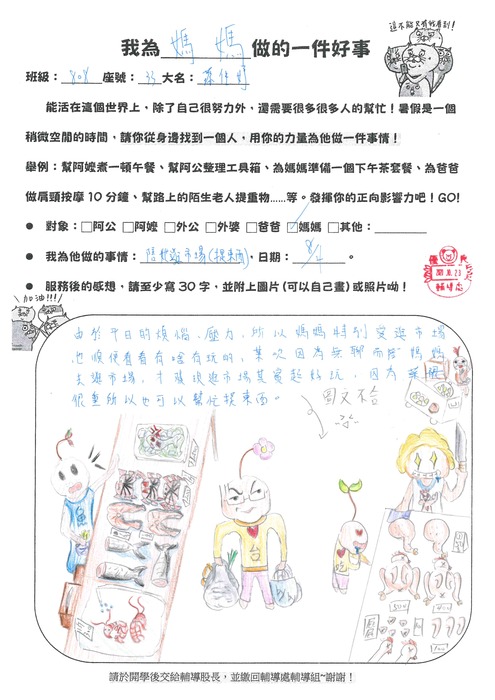 這不能只有我看到!
我為 媽媽 做的一件好事
班級:808 座號:35 大名:
能活在這個世界上,除了自己很努力外,還需要很多很多人的幫忙!暑假是一個
稍微空閒的時間,請你從身邊找到一個人,用你的力量為他做一件事情!
舉例:幫阿嬤煮一頓午餐、幫阿公整理工具箱、為媽媽準備一個下午茶套餐、為爸爸
做肩頸按摩10分鐘、幫路上的陌生老人提重物……等。發揮你的正向影響力吧!GO!
● 對象:□阿公 □阿嬤 □外公 □外婆 □爸爸 ☑媽媽 □其他:
● 我為他做的事情:陪她逛市場(提東西),日期:8/1。
● 服務後的感想,請至少寫30字,並附上圖片(可以自己畫)或照片呦!
加油!!!
由於平日的煩惱、壓力,所以媽媽特別愛逛市場
也順便看看有啥好玩的,某次因為無聊而陪媽媽
去逛市場,才發現逛市場其實超好玩,因為
很重所以也可以幫忙提東西。
圖文不合
台
吃
請於開學後交給輔導股長,並繳回輔導處輔導組~謝謝!